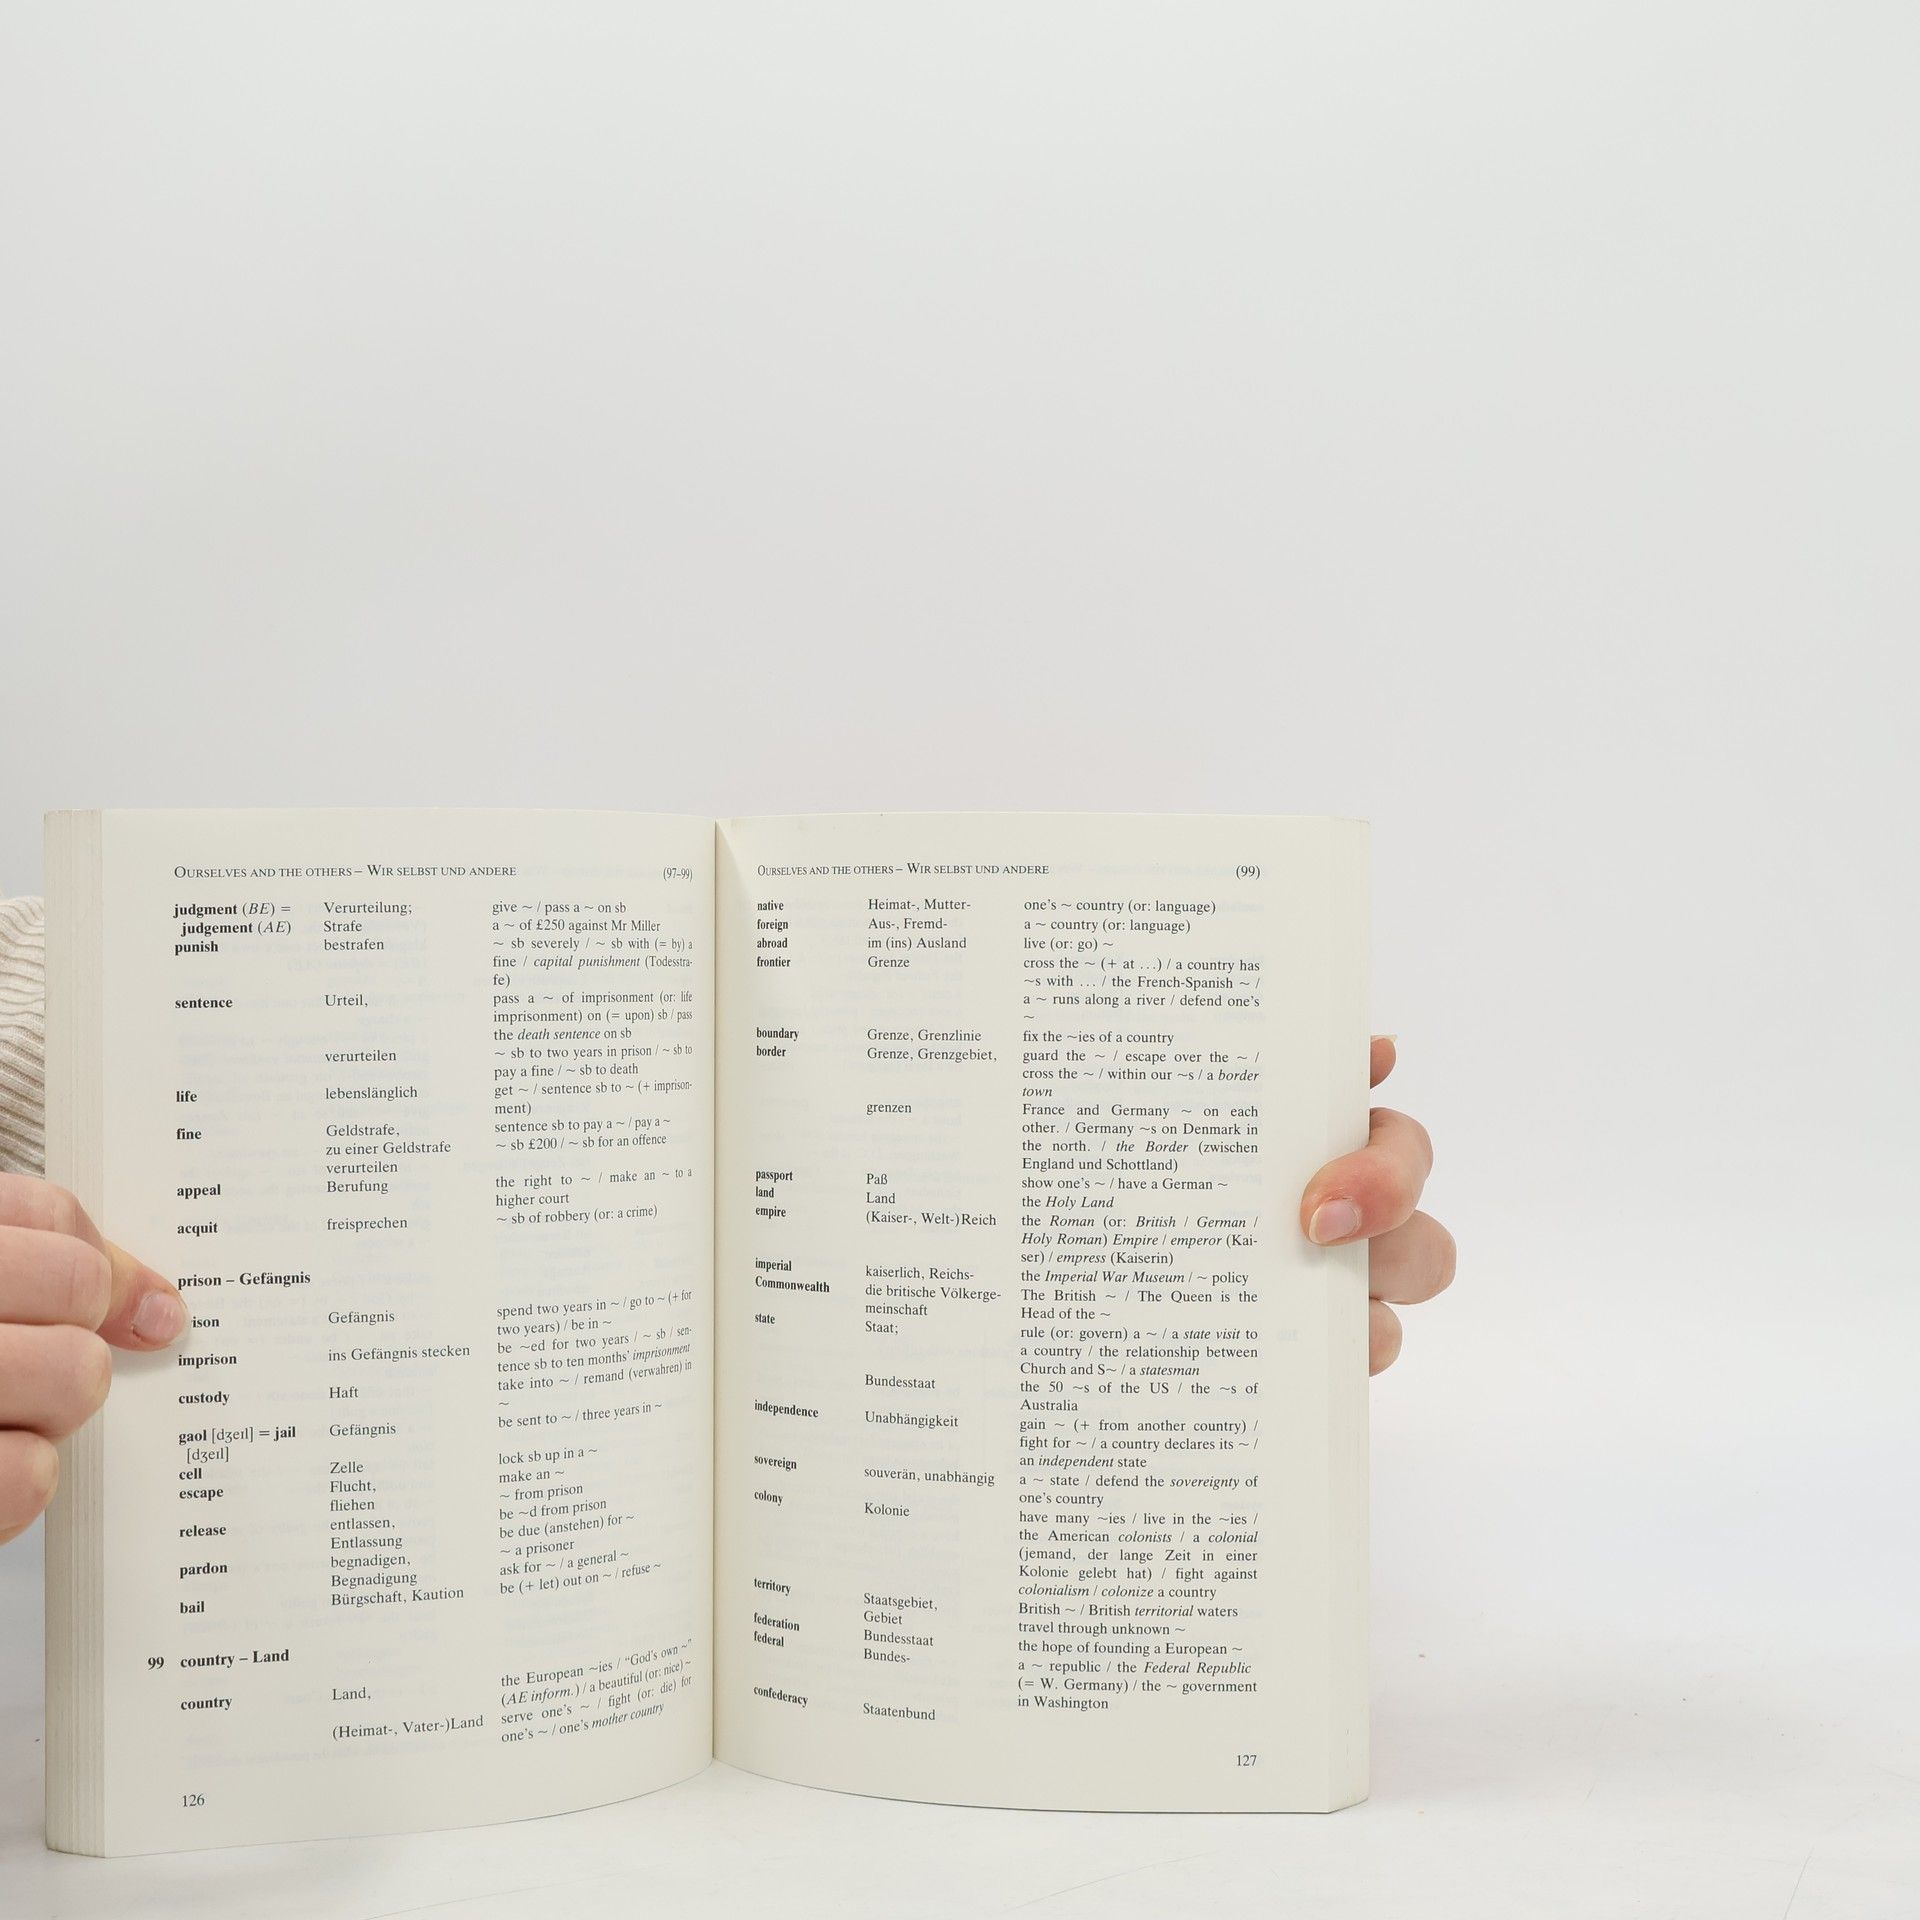 OURSELVES AND THE OTHERS – WIR SELBST UND ANDERE (97–99)
judgment (BE) = Verurteilung; give ~ / pass a ~ on sb
judgement (AE) Strafe a ~ of £250 against Mr Miller
punish bestrafen ~ sb severely / ~ sb with (= by) a
fine / capital punishment (Todesstra-
fe)
sentence Urteil, pass a ~ of imprisonment (or: life
imprisonment) on (= upon) sb / pass
the death sentence on sb
verurteilen ~ sb to two years in prison / ~ sb to
pay a fine / ~ sb to death
life lebenslänglich get ~ / sentence sb to ~ (+ imprison-
ment)
fine Geldstrafe, sentence sb to pay a ~ / pay a ~
zu einer Geldstrafe ~ sb £200 / ~ sb for an offence
verurteilen
appeal Berufung the right to ~ / make an ~ to a
higher court
acquit freisprechen ~ sb of robbery (or: a crime)
prison – Gefängnis
rison Gefängnis spend two years in ~ / go to ~ (+ for
two years) / be in ~
imprison ins Gefängnis stecken be ~ed for two years / ~ sb / sen-
tence sb to ten months' imprisonment
custody Haft take into ~ / remand (verwahren) in
~
gaol [dʒeɪl] = jail Gefängnis be sent to ~ / three years in ~
[dʒeɪl]
cell Zelle lock sb up in a ~
escape Flucht, make an ~
fliehen ~ from prison
release entlassen, be ~d from prison
Entlassung be due (anstehen) for ~
pardon begnadigen, ~ a prisoner
Begnadigung ask for ~ / a general ~
bail Bürgschaft, Kaution be (+ let) out on ~ / refuse ~
99 country – Land
country Land, the European ~ies / "God's own ~"
(AE inform.) / a beautiful (or: nice) ~
(Heimat-, Vater-)Land serve one's ~ / fight (or: die) for
one's ~ / one's mother country
126
OURSELVES AND THE OTHERS – WIR SELBST UND ANDERE (99)
native Heimat-, Mutter- one's ~ country (or: language)
foreign Aus-, Fremd- a ~ country (or: language)
abroad im (ins) Ausland live (or: go) ~
frontier Grenze cross the ~ (+ at ...) / a country has
~s with ... / the French-Spanish ~ /
a ~ runs along a river / defend one's
~
boundary Grenze, Grenzlinie fix the ~ies of a country
border Grenze, Grenzgebiet, guard the ~ / escape over the ~ /
cross the ~ / within our ~s / a border
town
grenzen France and Germany ~ on each
other. / Germany ~s on Denmark in
the north. / the Border (zwischen
England und Schottland)
passport Paß show one's ~ / have a German ~
land Land the Holy Land
empire (Kaiser-, Welt-)Reich the Roman (or: British / German /
Holy Roman) Empire / emperor (Kai-
ser) / empress (Kaiserin)
imperial kaiserlich, Reichs- the Imperial War Museum / ~ policy
Commonwealth die britische Völkerge- The British ~ / The Queen is the
meinschaft Head of the ~
state Staat; rule (or: govern) a ~ / a state visit to
a country / the relationship between
Church and S~ / a statesman
Bundesstaat the 50 ~s of the US / the ~s of
Australia
independence Unabhängigkeit gain ~ (+ from another country) /
fight for ~ / a country declares its ~ /
an independent state
sovereign souverän, unabhängig a ~ state / defend the sovereignty of
one's country
colony Kolonie have many ~ies / live in the ~ies /
the American colonists / a colonial
(jemand, der lange Zeit in einer
Kolonie gelebt hat) / fight against
colonialism / colonize a country
territory Staatsgebiet, British ~ / British territorial waters
Gebiet travel through unknown ~
federation Bundesstaat the hope of founding a European ~
federal Bundes- a ~ republic / the Federal Republic
(= W. Germany) / the ~ government
in Washington
confederacy Staatenbund
127